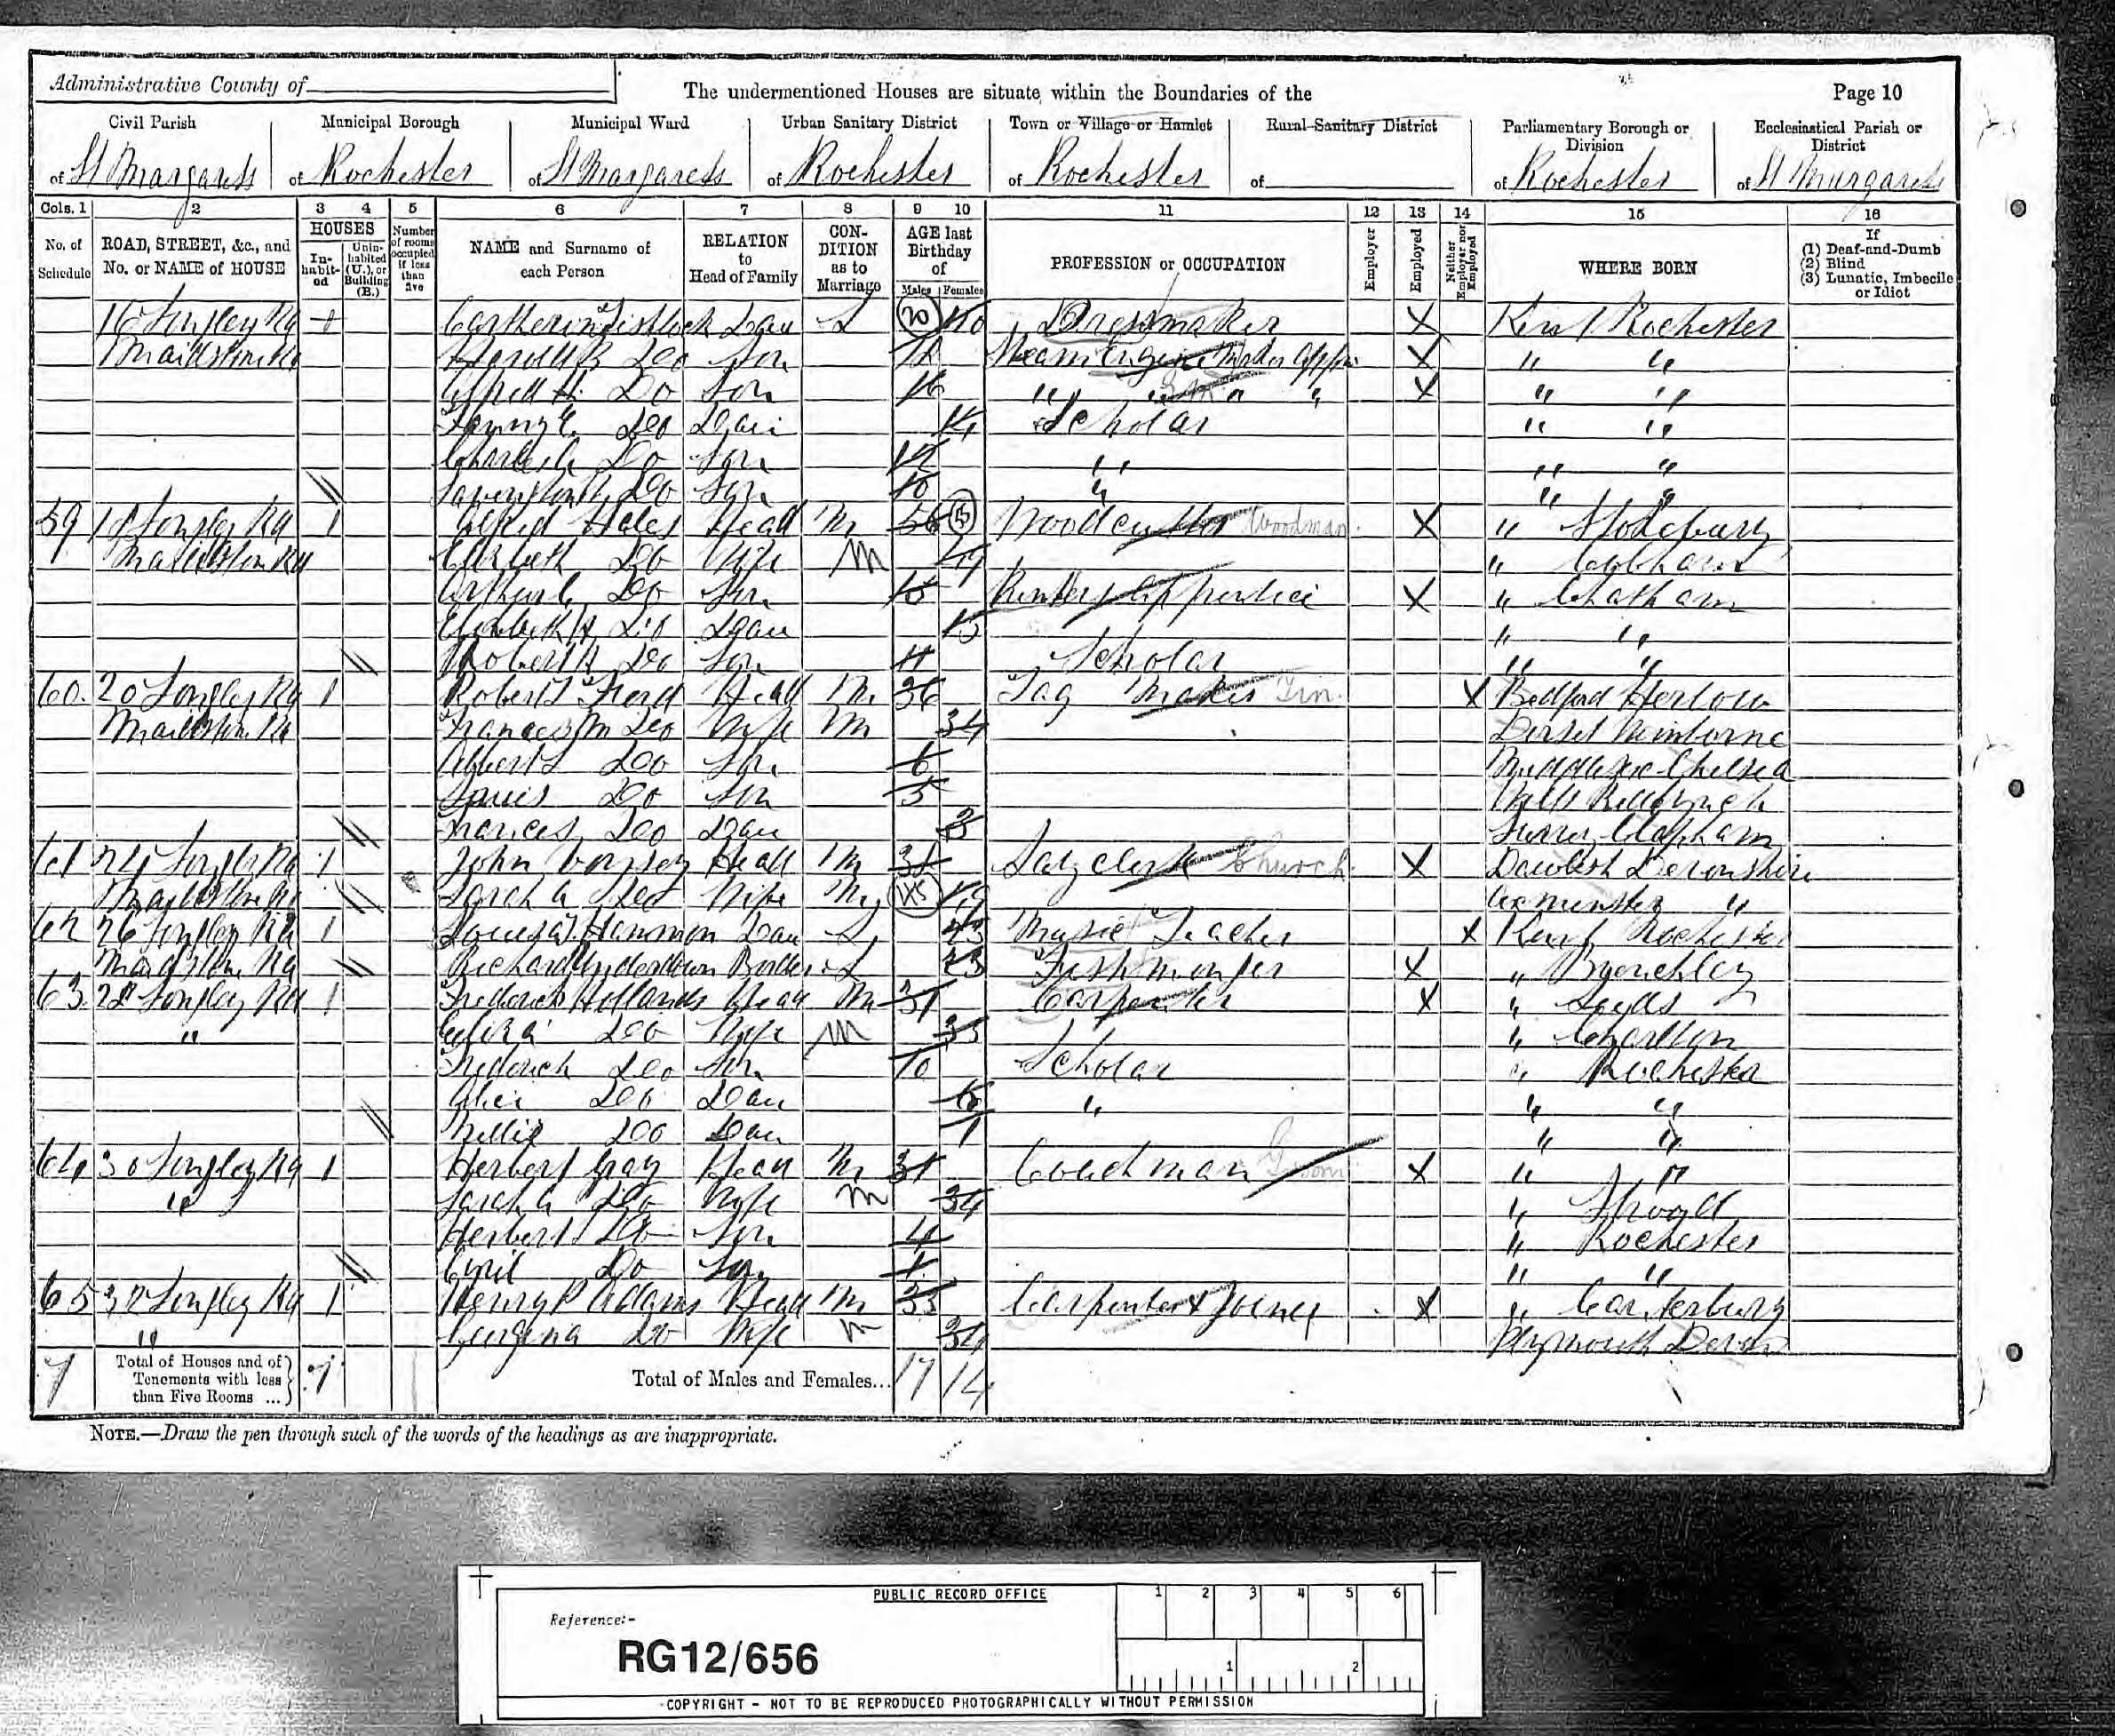 Administrative County of
The undermentioned Houses are situate within the Boundaries of the
Page 10
Civil Parish Municipal Borough Municipal Ward Urban Sanitary District Town or Village or Hamlet Rural Sanitary District Parliamentary Borough or Division Ecclesiastical Parish or District
of St Margarets of Rochester of St Margarets of Rochester of Rochester of of Rochester of St Margarets
Cols. 1 2 3 4 5 6 7 8 9 10 11 12 13 14 15 16
No. of Schedule ROAD, STREET, &c., and No. or NAME of HOUSE HOUSES In-habit-ed Unin-habited (U.), or Building (B.) Number of rooms occupied if less than five NAME and Surname of each Person RELATION to Head of Family CON-DITION as to Marriage AGE last Birthday of Males Females PROFESSION or OCCUPATION Employer Employed Neither Employer nor Employed WHERE BORN If (1) Deaf-and-Dumb (2) Blind (3) Lunatic, Imbecile or Idiot
16 Longley Rd Dau S 20 Dressmaker X Kent Rochester
Maidstone Rd Harold Do Son Steam Engine Maker X " "
Alfred H Do Son 16 " " " " X " "
Do Dau 14 Scholar " "
Do Son 12 " " "
Do Son 10 " " "
59 18 Longley Rd 1 Alfred Hales Head M 56 Woodcutter Woodman X "
Maidstone Rd Do Wife M 49 " Cobham
Arthur Do Son Printers Apprentice X " Chatham
Elizabeth Do Dau 13 " "
Robert Do Son 11 Scholar " "
60 20 Longley Rd 1 Robert Ford Head M 36 Tag Maker Tin X Bedford
Maidstone Rd Frances M Do Wife M 34 Dorset Wimborne
Albert Do Son 6 Middlesex Chelsea
Louis Do Son 5
Frances Do Dau 3 Surrey Clapham
61 24 Longley Rd 1 John Head M Church X Dawlish Devonshire
Maidstone Rd Sarah A Do Wife M 45 Axminster "
62 26 Longley Rd 1 Louisa Hammon Dau S Music Teacher X Kent Rochester
Maidstone Rd Richard Underdown Border S 23 Fishmonger X " Brenchley
63 28 Longley Rd 1 Frederick Hollands Head M 31 Carpenter X " Leeds
" Do Wife M 33 " Charlton
Frederick Do Son 10 Scholar " Rochester
Alice Do Dau " " "
Nellie Do Dau 1 " "
64 30 Longley Rd 1 Herbert Gray Head M 31 Coachman Groom X " "
" Sarah A Do Wife M 34 " Strood
Herbert Do Son 4 " Rochester
Cyril Do Son 1 " "
65 32 Longley Rd 1 Henry P Adams Head M 33 Carpenter & Joiner X " Canterbury
" Georgina Do Wife M 34 Plymouth Devon
7 Total of Houses and of Tenements with less than Five Rooms ... 7 Total of Males and Females... 17 14
NOTE.—Draw the pen through such of the words of the headings as are inappropriate.
PUBLIC RECORD OFFICE 1 2 3 4 5 6
Reference:-
RG12/656
1 2
COPYRIGHT - NOT TO BE REPRODUCED PHOTOGRAPHICALLY WITHOUT PERMISSION